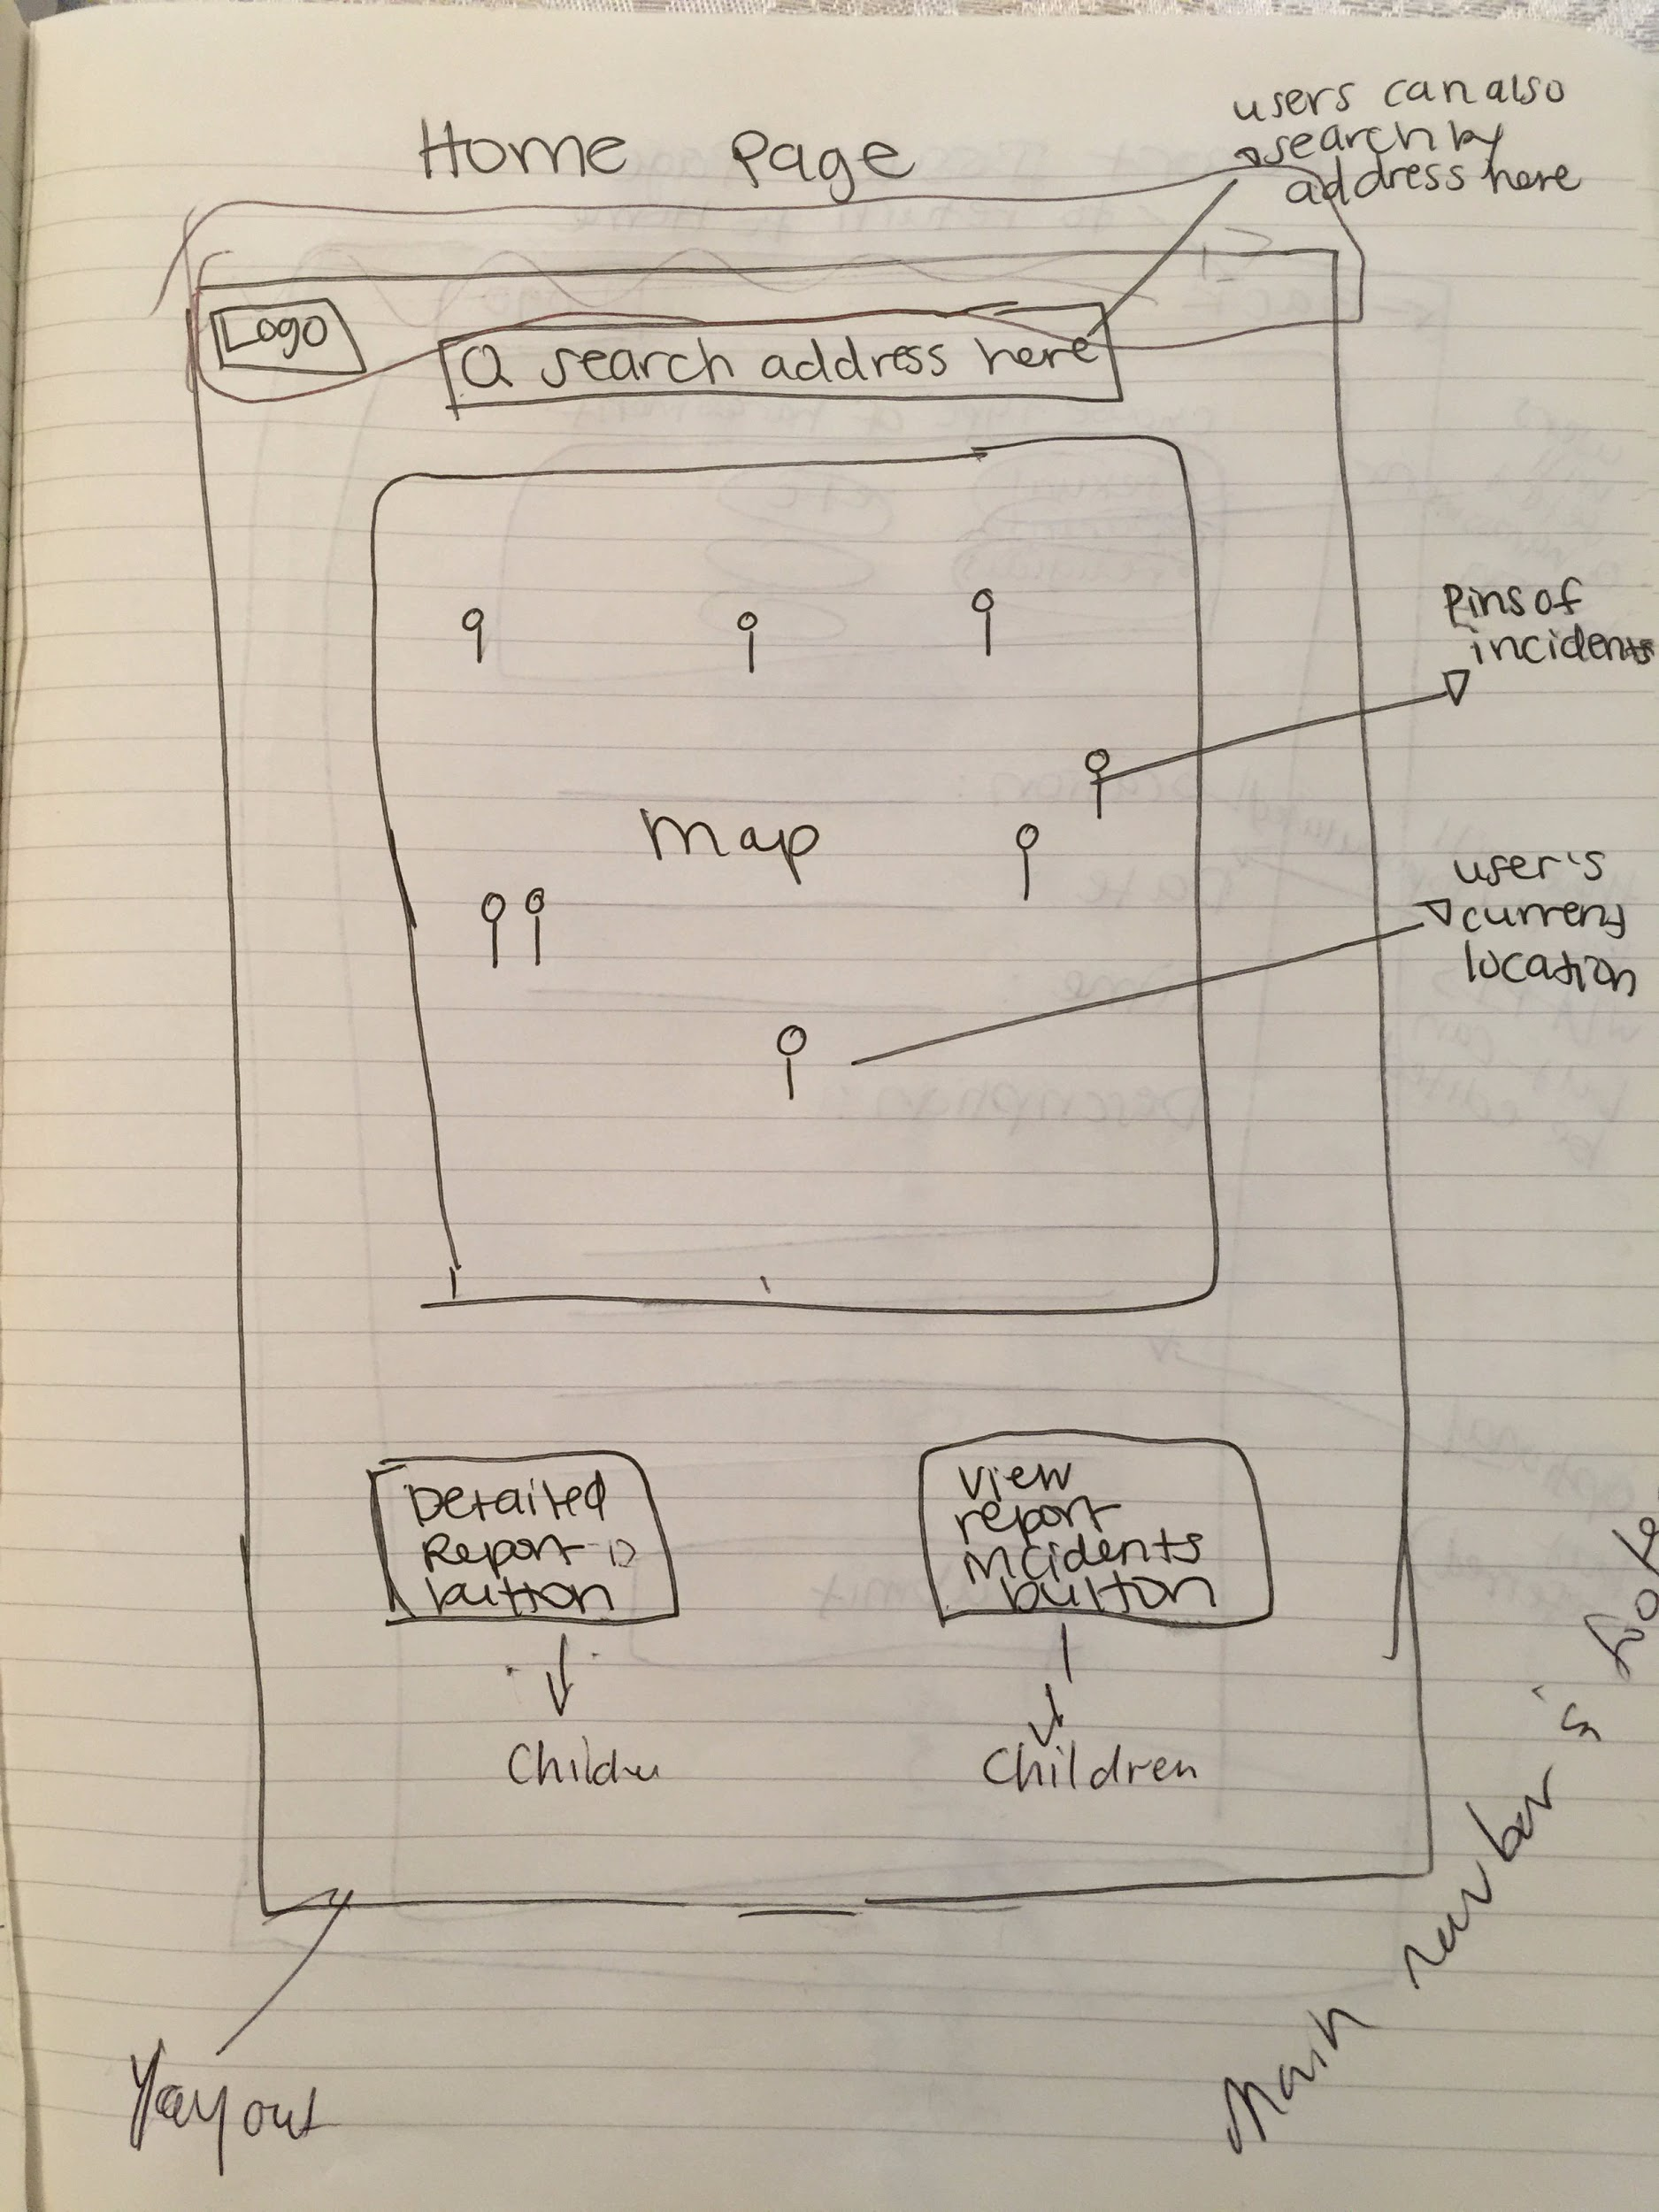 Home Page
users can also
search by
address here
Logo
search address here
Pins of
incidents
Map
user's
current
location
Detailed
Report
button
View
report
incidents
button
Children
Layout
Main navbar